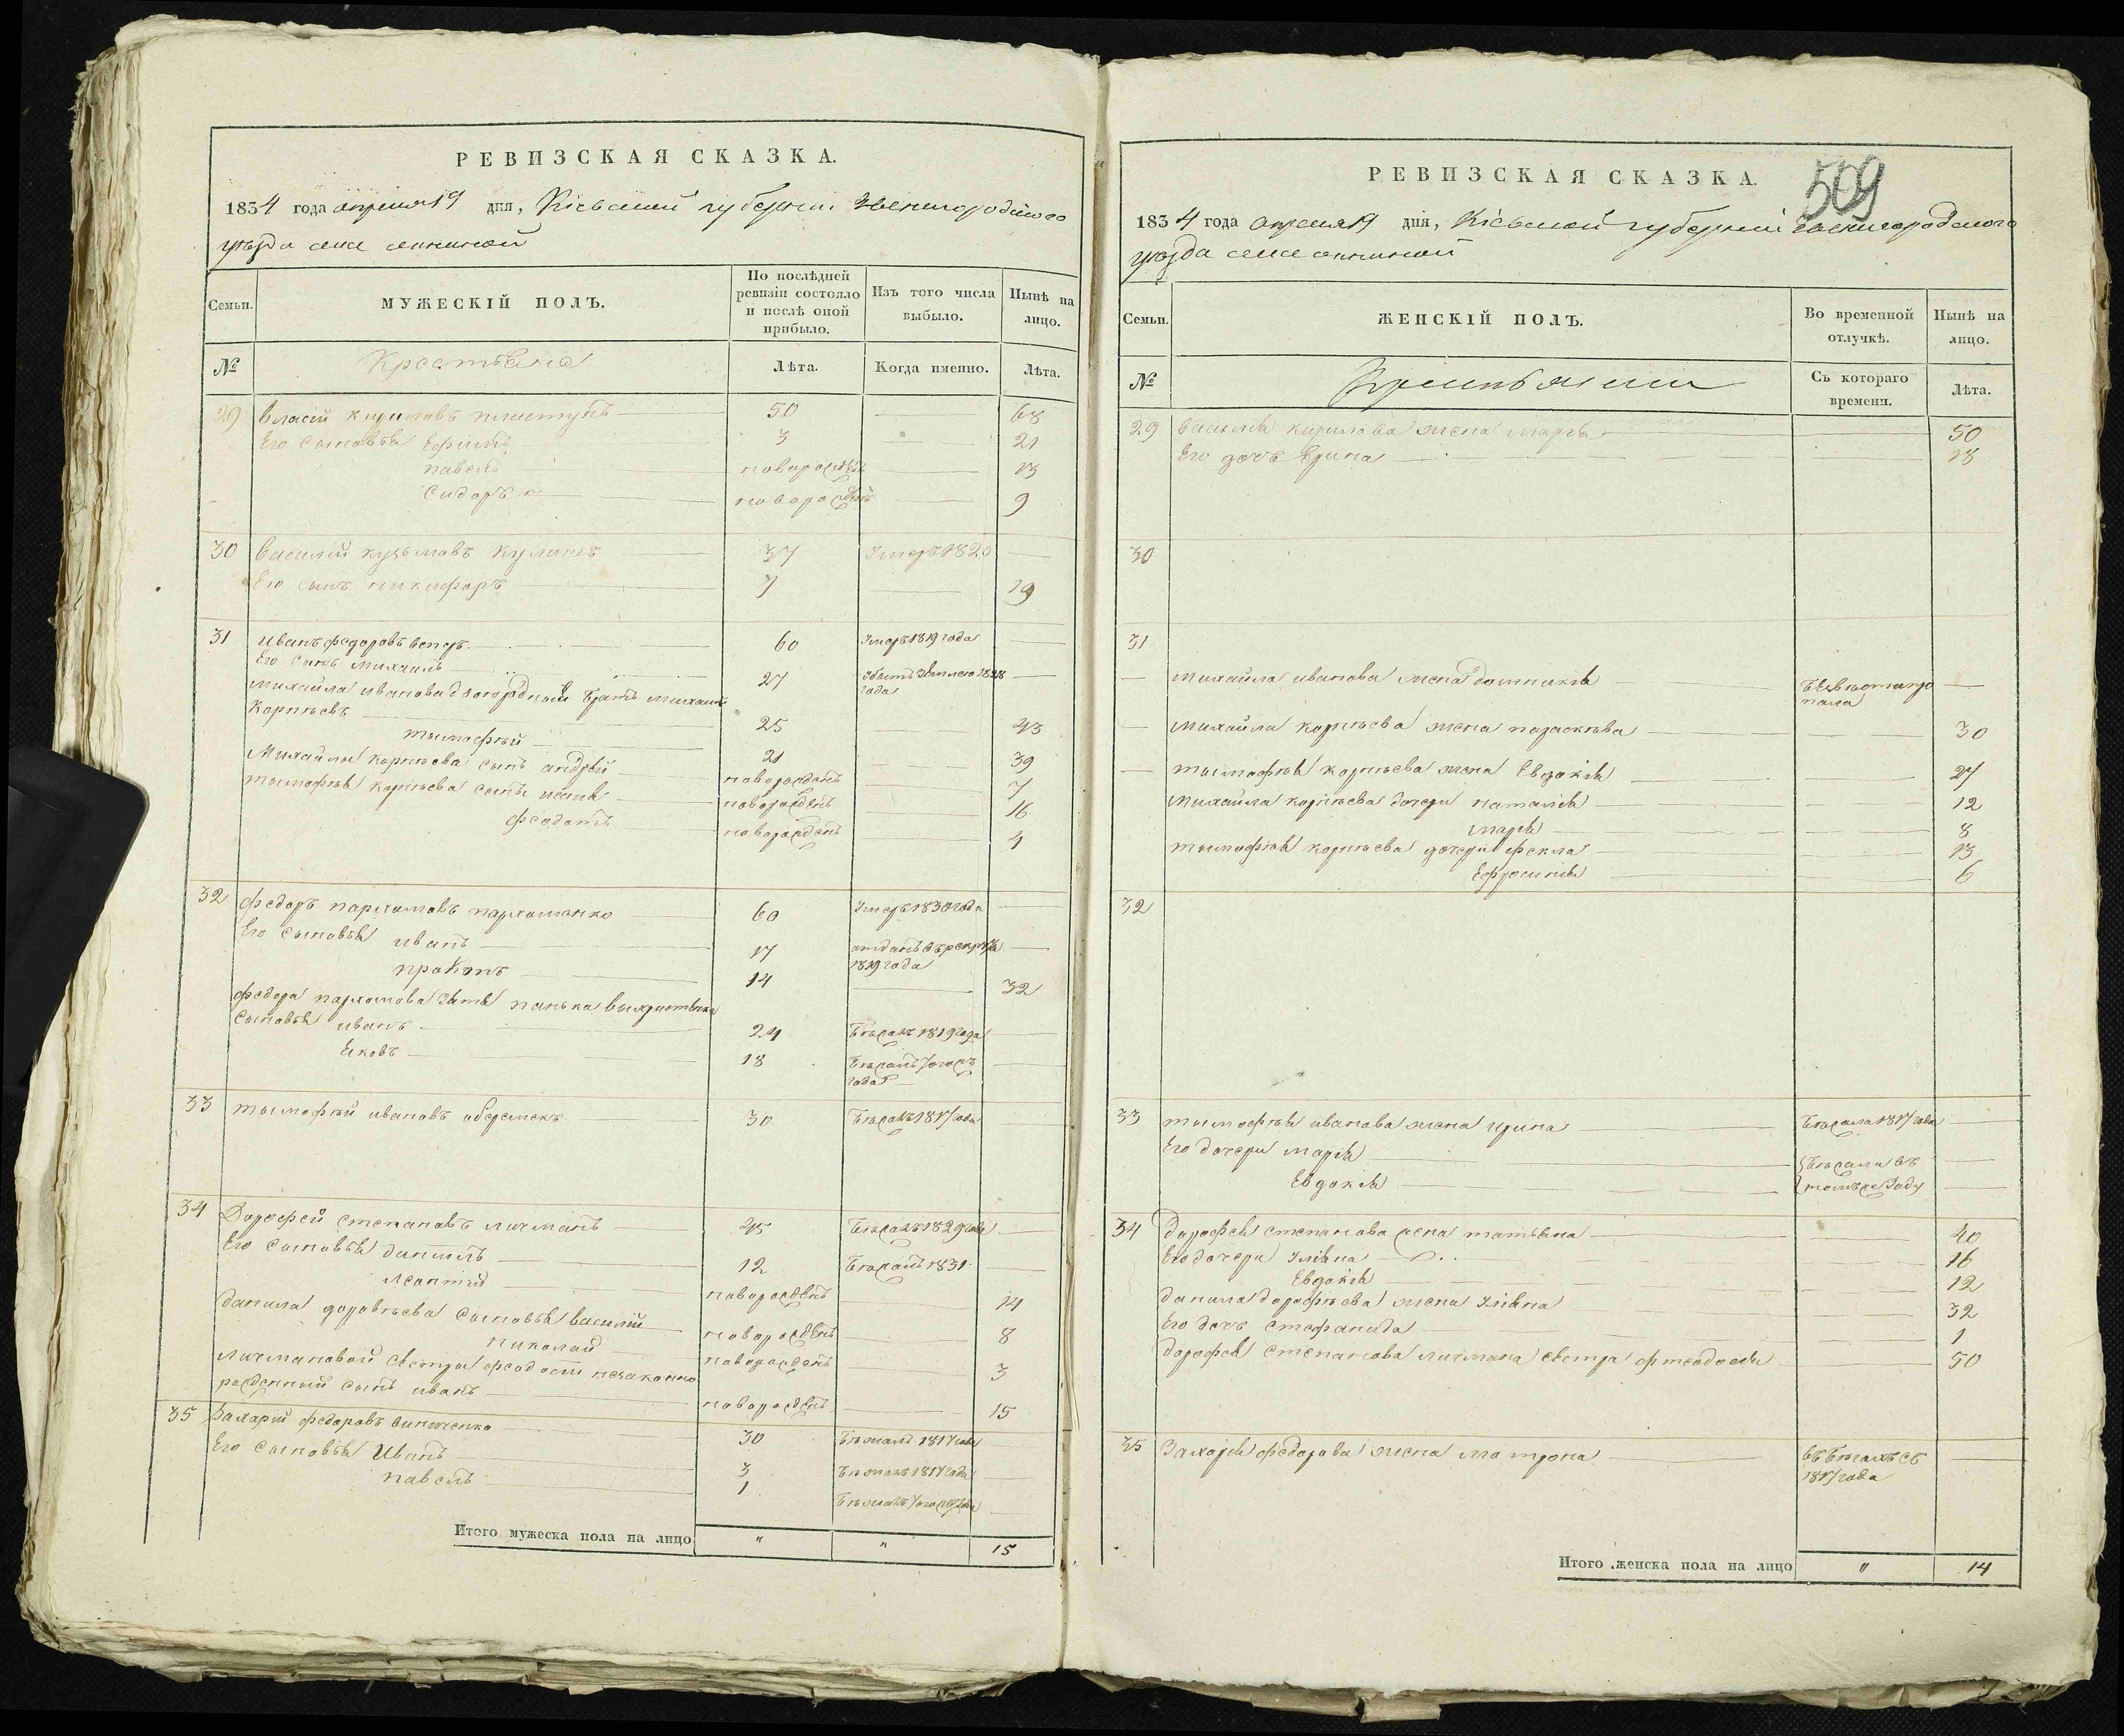 РЕВИЗСКАЯ СКАЗКА.
1834 года апреля 19 дня, Кіевской губерніи Звенигородского
уезда села
Семьи.
МУЖЕСКІЙ ПОЛЪ.
По послѣдней
ревизіи состояло
и послѣ оной
прибыло.
Изъ того числа
выбыло.
Нынѣ на
лицо.
№
Крестьяне
Лѣта.
Когда именно.
Лѣта.
29 Власій Кириловъ пластунъ 50 68
Его сыновья Ефимъ 3 21
павелъ новорожденъ 13
сидоръ новорожденъ 9
30 Василій кузьмовъ кулишъ 37 Умеръ 1820
Его сынъ никифоръ 7 19
31 Иванъ федоровъ 60 Умеръ 1819 года
Его сынъ Михаилъ 27 1828
года
Михайла иванова двоюродный братъ михаилъ
Корнѣевъ 25 43
тымофѣй 21 39
Михайлы корнѣева сынъ андрей новорожденъ 7
тымофѣя корнѣева сынъ новорожденъ 16
феодотъ новорожденъ 4
32 федоръ пархомовъ пархоменко 60 Умеръ 1830 года
Его сыновья иванъ 17 отданъ въ рекруты
1819 года
прокопъ 14 32
федора пархомова зятя панька
сыновья иванъ 24 Бежалъ 1819 года
Яковъ 18 Бежалъ того жъ
года
33 тымофѣй ивановъ 30 Бежалъ 1817 года
34 Дорофей степановъ личманъ 45 Бежалъ 1829 года
Его сыновья данилъ 12 Бежалъ 1831
леонтій новорожденъ 14
данила дорофѣева сыновья василій новорожденъ 8
николай новорожденъ 3
личмановой сестры феодосіи незаконно
рожденный сынъ иванъ новорожденъ 15
35 Захарій федоровъ 30 Бежалъ 1817 года
Его сыновья Иванъ 3 Бежалъ 1817 года
павелъ 1 Бежалъ того жъ года
Итого мужеска пола на лицо " " 15
509
РЕВИЗСКАЯ СКАЗКА.
1834 года апреля 19 дня, Кіевской губерніи Звенигородского
уезда села
Семьи.
ЖЕНСКІЙ ПОЛЪ.
Во временной
отлучкѣ.
Нынѣ на
лицо.
№
Крестьяне
Съ котораго
времени.
Лѣта.
29 Власія кирилова жена марія 50
Его дочь Ирина 18
30
31
Михайла иванова жена домникія
Михайла корнѣева жена параскѣва 30
тымофѣя корнѣева жена Евдокія 27
Михайла корнѣева дочери наталія 12
марія 8
тымофѣя корнѣева дочери фекла 13
Ефросинія 6
32
33 тымофѣя иванова жена ирина Бежала 1817 года
Его дочери марія Бежали въ
Евдокія томъ же году
34 дорофея степанова жена татьяна 40
Его дочери Уліяна 16
Евдокія 12
данила дорофѣева жена Уліяна 32
Его дочь стефанида 1
дорофея степанова личмана сестра феодосія 50
35 Захарія федорова жена матрона въ бегахъ съ
1817 года
Итого женска пола на лицо " 14